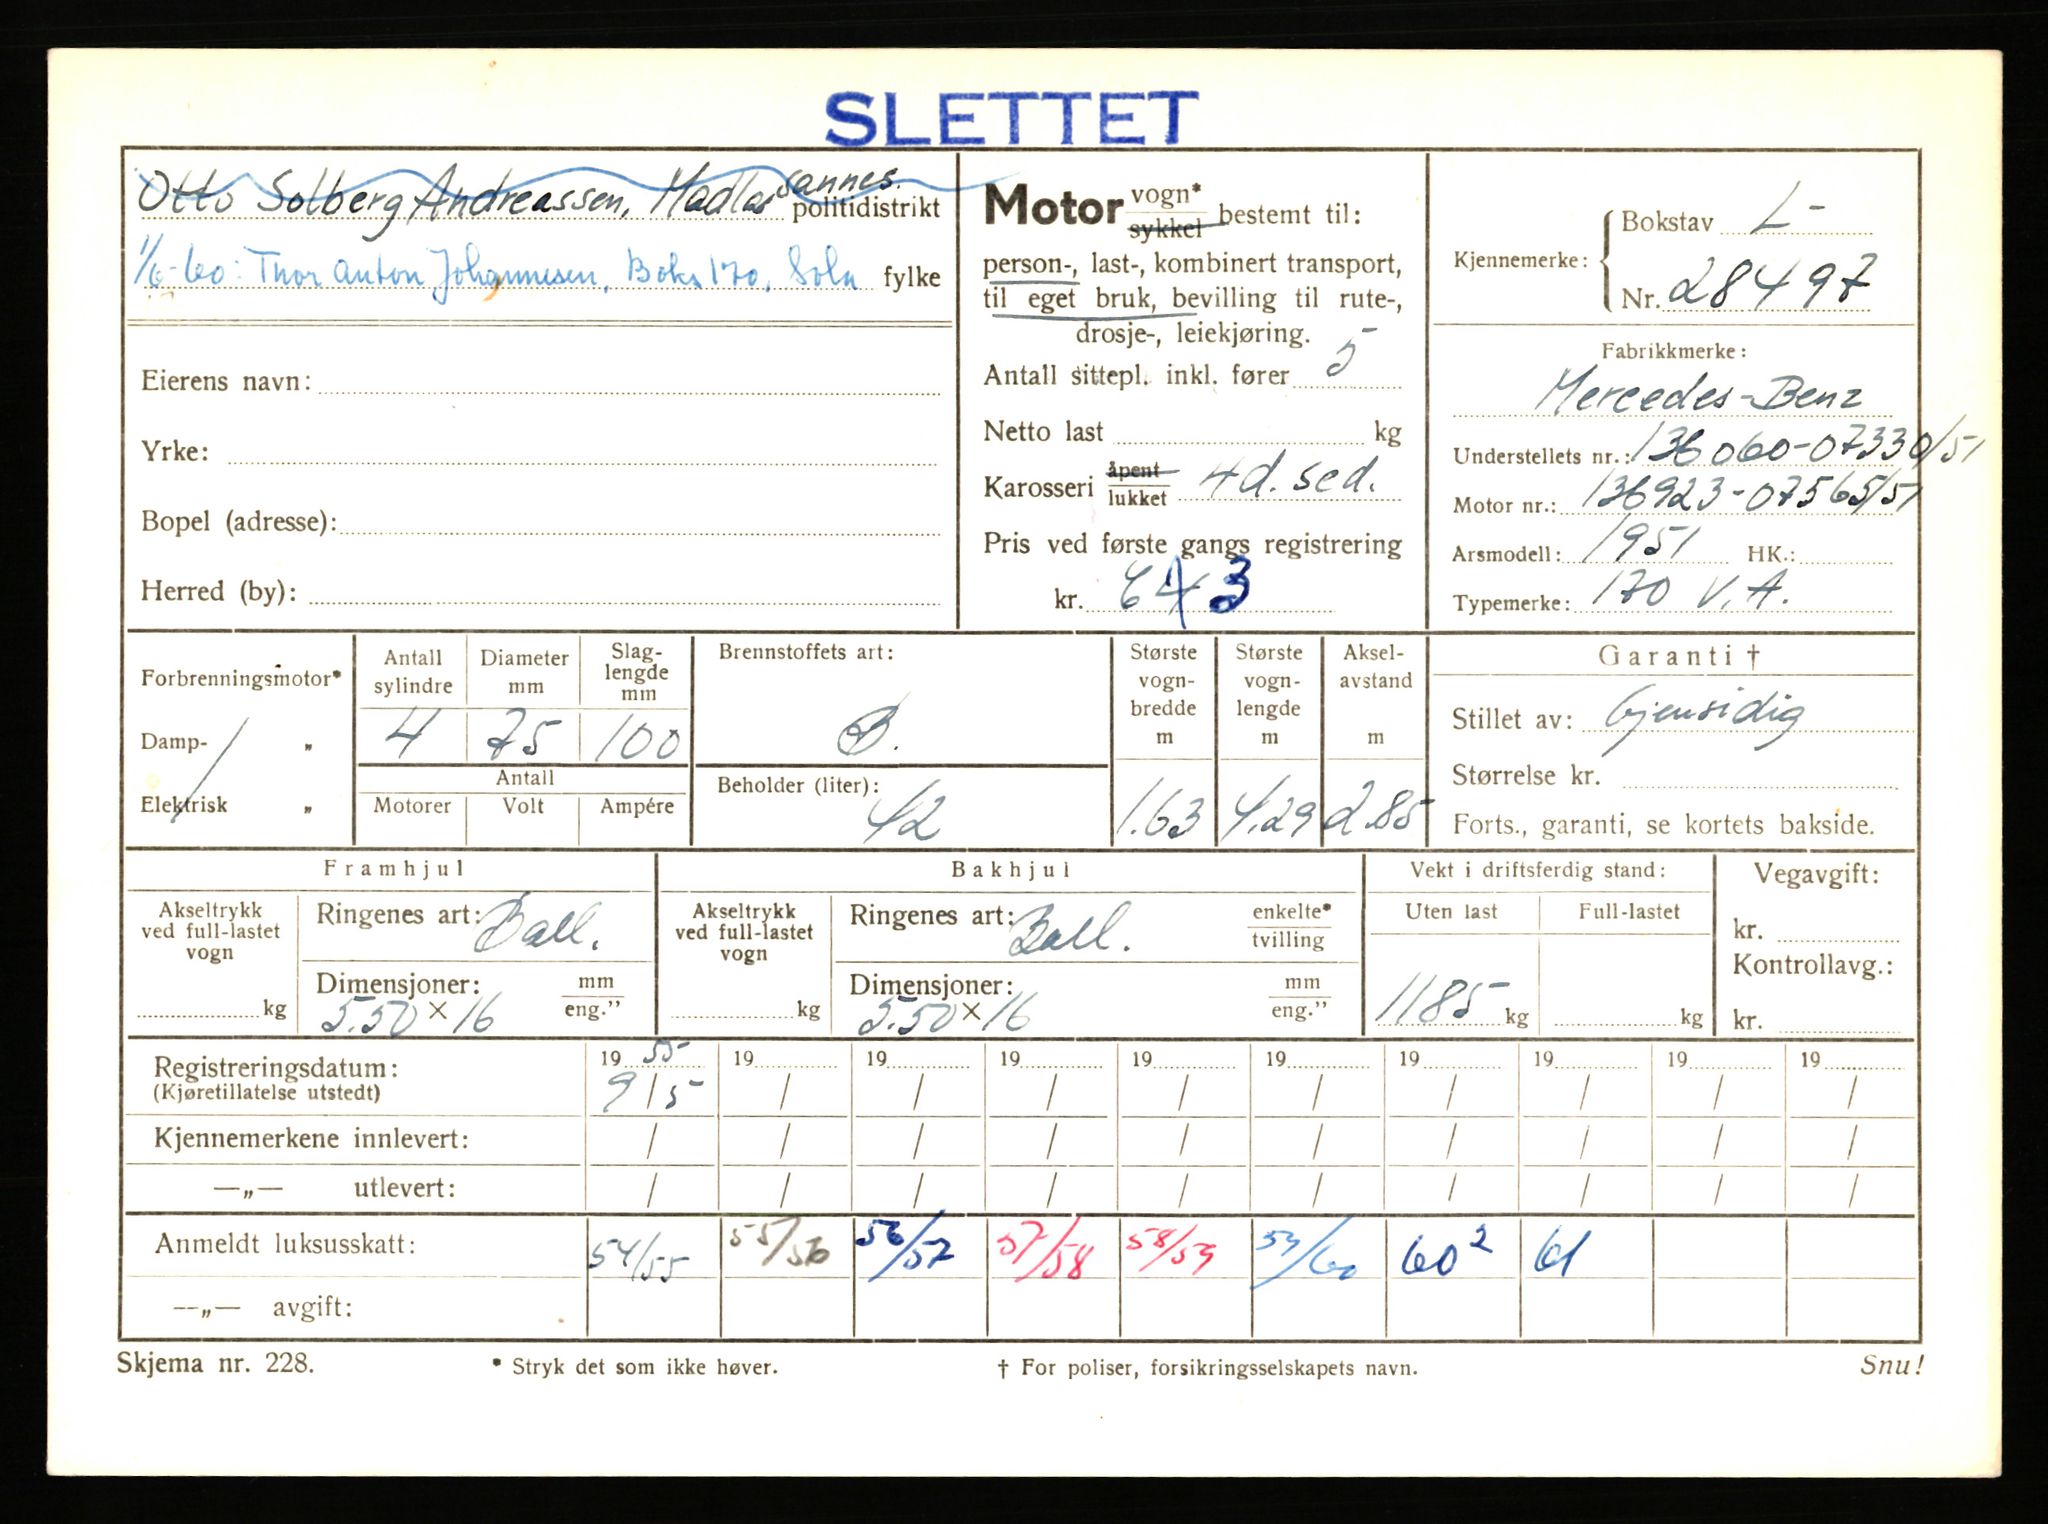 SLETTET
Otto Solberg Andreassen, Madla sannes.
politidistrikt
1/6-60: Thor Anton Johannesen, Boks 170, Sola fylke
Eierens navn:
Yrke:
Bopel (adresse):
Herred (by):
Motor vogn* sykkel bestemt til:
person-, last-, kombinert transport,
til eget bruk, bevilling til rute-,
drosje-, leiekjøring.
Antall sittepl. inkl. fører 5
Netto last kg
Karosseri åpent lukket 4d. sed.
Pris ved første gangs registrering
kr. 6443
Kjennemerke: Bokstav L-
Nr. 28497
Fabrikkmerke:
Mercedes-Benz
Understellets nr.: 136060-07330/51
Motor nr.: 136923-07565/51
Årsmodell: 1951 HK.:
Typemerke: 170 V.A.
Forbrenningsmotor*
Damp- „
Elektrisk „
Antall sylindre
Diameter mm
Slaglengde mm
4 75 100
Antall
Motorer Volt Ampére
Brennstoffets art:
B.
Beholder (liter):
42
Største vogn-bredde m
Største vogn-lengde m
Aksel-avstand m
1.63 4.29 2.85
Garanti †
Stillet av: Gjensidig
Størrelse kr.
Forts., garanti, se kortets bakside.
Framhjul
Akseltrykk ved full-lastet vogn
kg
Ringenes art: Ball.
Dimensjoner: mm eng.”
5.50 × 16
Bakhjul
Akseltrykk ved full-lastet vogn
kg
Ringenes art: Ball. enkelte* tvilling
Dimensjoner: mm eng.”
5.50 × 16
Vekt i driftsferdig stand:
Uten last Full-lastet
1185 kg kg
Vegavgift:
kr.
Kontrollavg.:
kr.
Registreringsdatum: 19 55 19 19 19 19 19 19 19 19 19
(Kjøretillatelse utstedt) 9/5 / / / / / / / / /
Kjennemerkene innlevert: / / / / / / / / / /
—„— utlevert: / / / / / / / / / /
Anmeldt luksusskatt: 54/55 55/56 56/57 57/58 58/59 59/60 60² 61
—„— avgift:
Skjema nr. 228. * Stryk det som ikke høver. † For poliser, forsikringsselskapets navn. Snu!